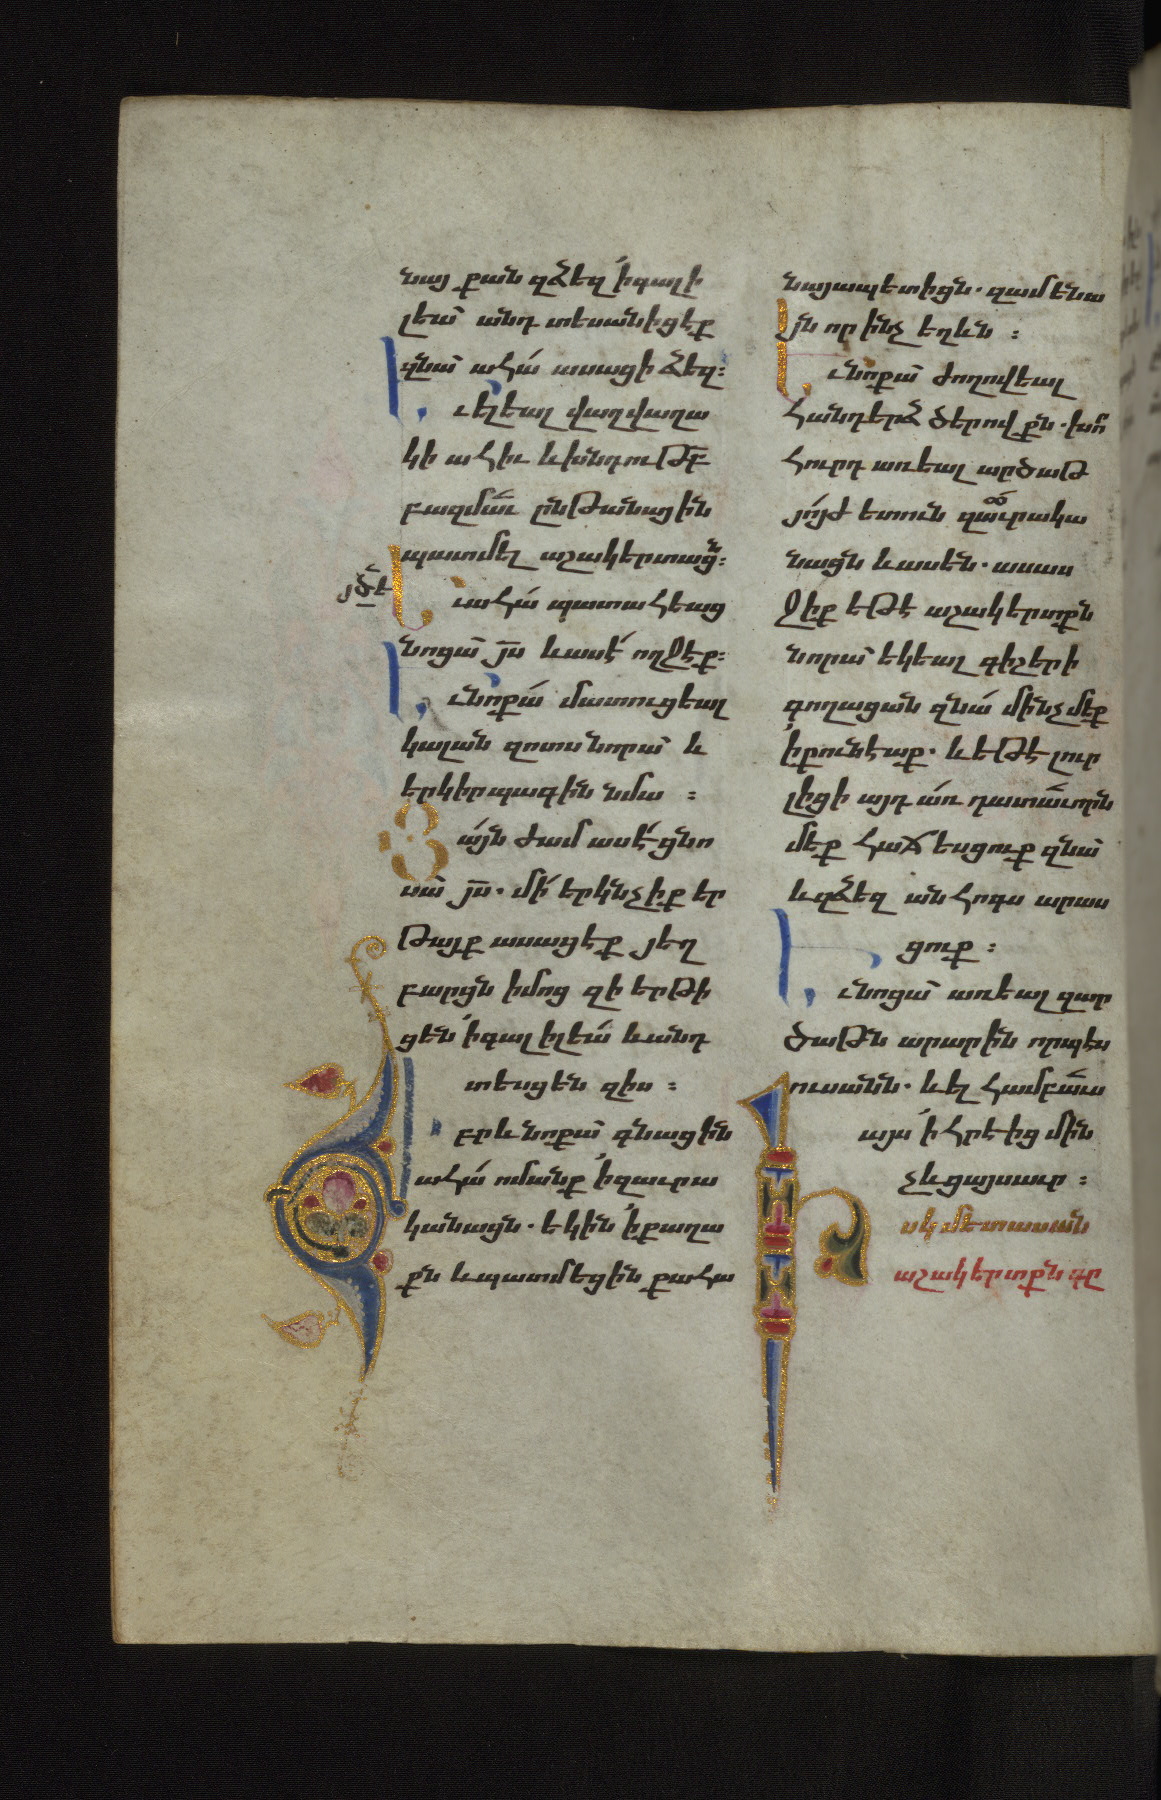 նայ քան զձեզ ՛ի գալի
լեա՛ անդ տեսանիցէք
զնա՛ ահա՛ ասացի ձեզ։
Ւ ելեալ վաղվաղա
կի ահիւ և խնդութբ
բազմաւ ընթանային
պատմել աշակերտացն։
յծէ
Ւ ահա՛ պատահեաց
նոցա՛ յս և ասէ՛ ողջէք։
Ւ նոքա՛ մատուցեալ
կալան զոտս նորա՛ և
երկիրպագին նմա ։
Յայն ժամ ասէ՛ ցնո
սա՛ յս. մի՛ երկնչիք եր
թայք ասացէք յեղ
բարցն իմոց զի երթի
ցեն ՛ի գալիլեա՛ և անդ
տեսցեն զիս ։
Իբրև նոքա՛ գնացին
ահա՛ ոմանք ՛ի զաւրա
կանացն. եկին ՛ի քաղա
քն և պատմեցին քահա
նայապետիցն. զամենա
յն որ ինչ եղևն ։
Ւ նոքա՛ ժողովեալ
հանդերձ ծերովքն. խո
հուրդ առեալ արծաթ
յո՛յժ ետուն զաւրակա
նացն և ասեն. ասաս
ջիք եթէ աշակերտքն
նորա՛ եկեալ գիշերի
գողացան զնա՛ մինչ մեք
՛ի քունէաք. և եթէ լուր
լիցի այդ առ դատաւորն
մեք հաճեսցուք զնա՛
և զձեզ անհոգս արաս
ցուք ։
Ւ նոցա՛ առեալ զար
ծաթն արարին որպէս
ուսանն. և ել համբաւս
այս ՛ի հրէից մին
չև ցայսաւր ։
Իսկ մետասան
աշակերտքն գը